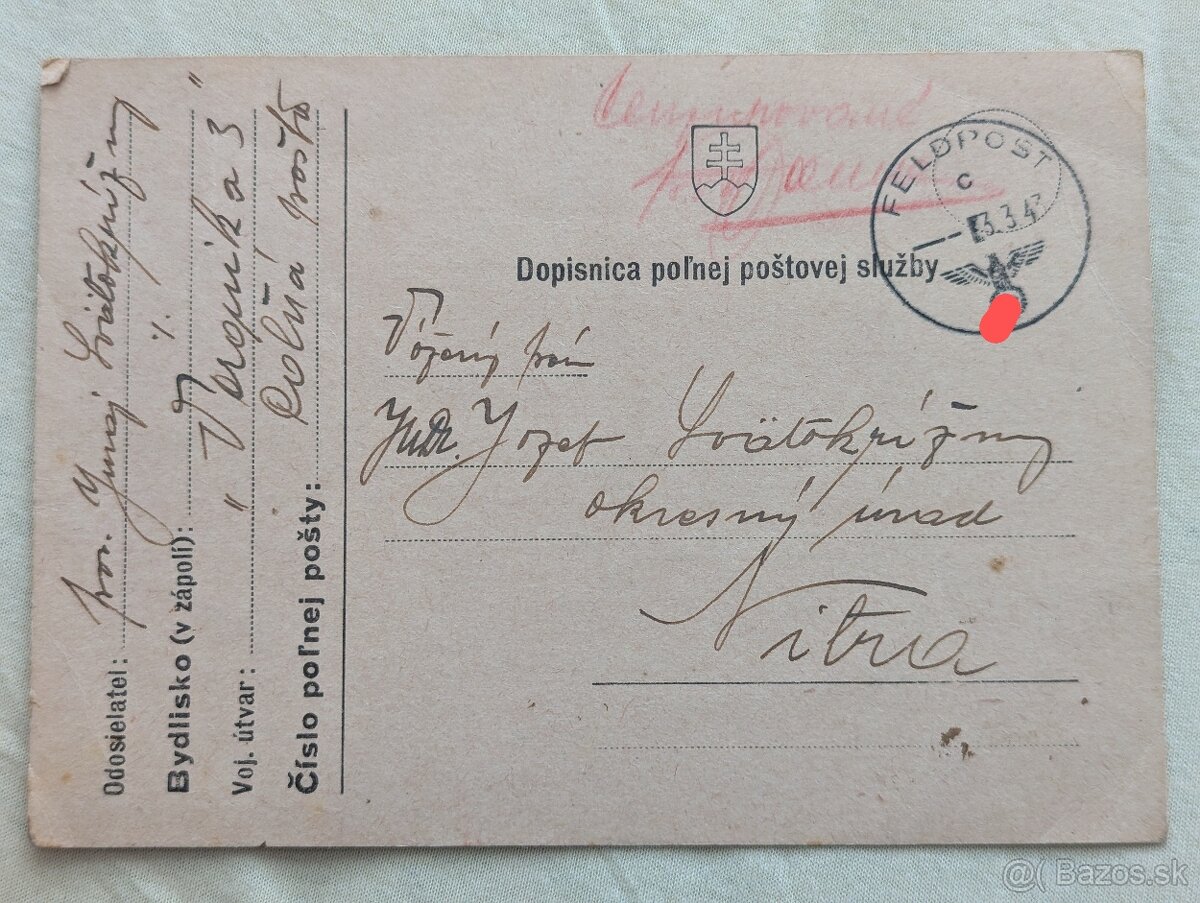 Cenzurované
FELDPOST
c
3.3.43
Dopisnica poľnej poštovej služby
Vážený pán
JuDr. Jozef Svätokrížny
okresný úrad
Nitra
Odosielateľ: por. Juraj Svätokrížny
Bydlisko (v zápolí): %.
Voj. útvar: " Veronika 3 "
Číslo poľnej pošty: Poľná pošta
@( Bazos.sk